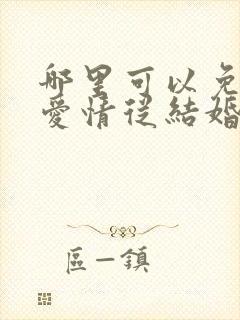 哪里可以免
愛情從結婚
區一鎮